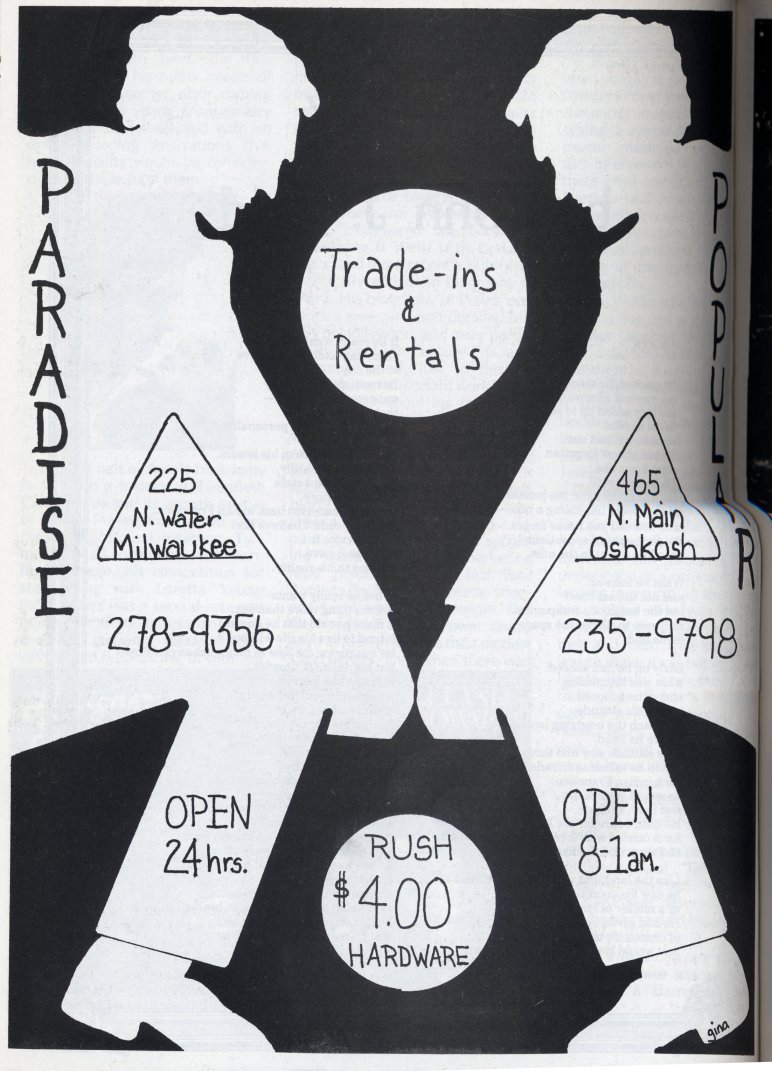 PARADISE
POPULAR
Trade-ins
&
Rentals
225
N. Water
Milwaukee
278-9356
465
N. Main
Oshkosh
235-9798
OPEN
24 hrs.
OPEN
8-1am.
RUSH
$4.00
HARDWARE
gina